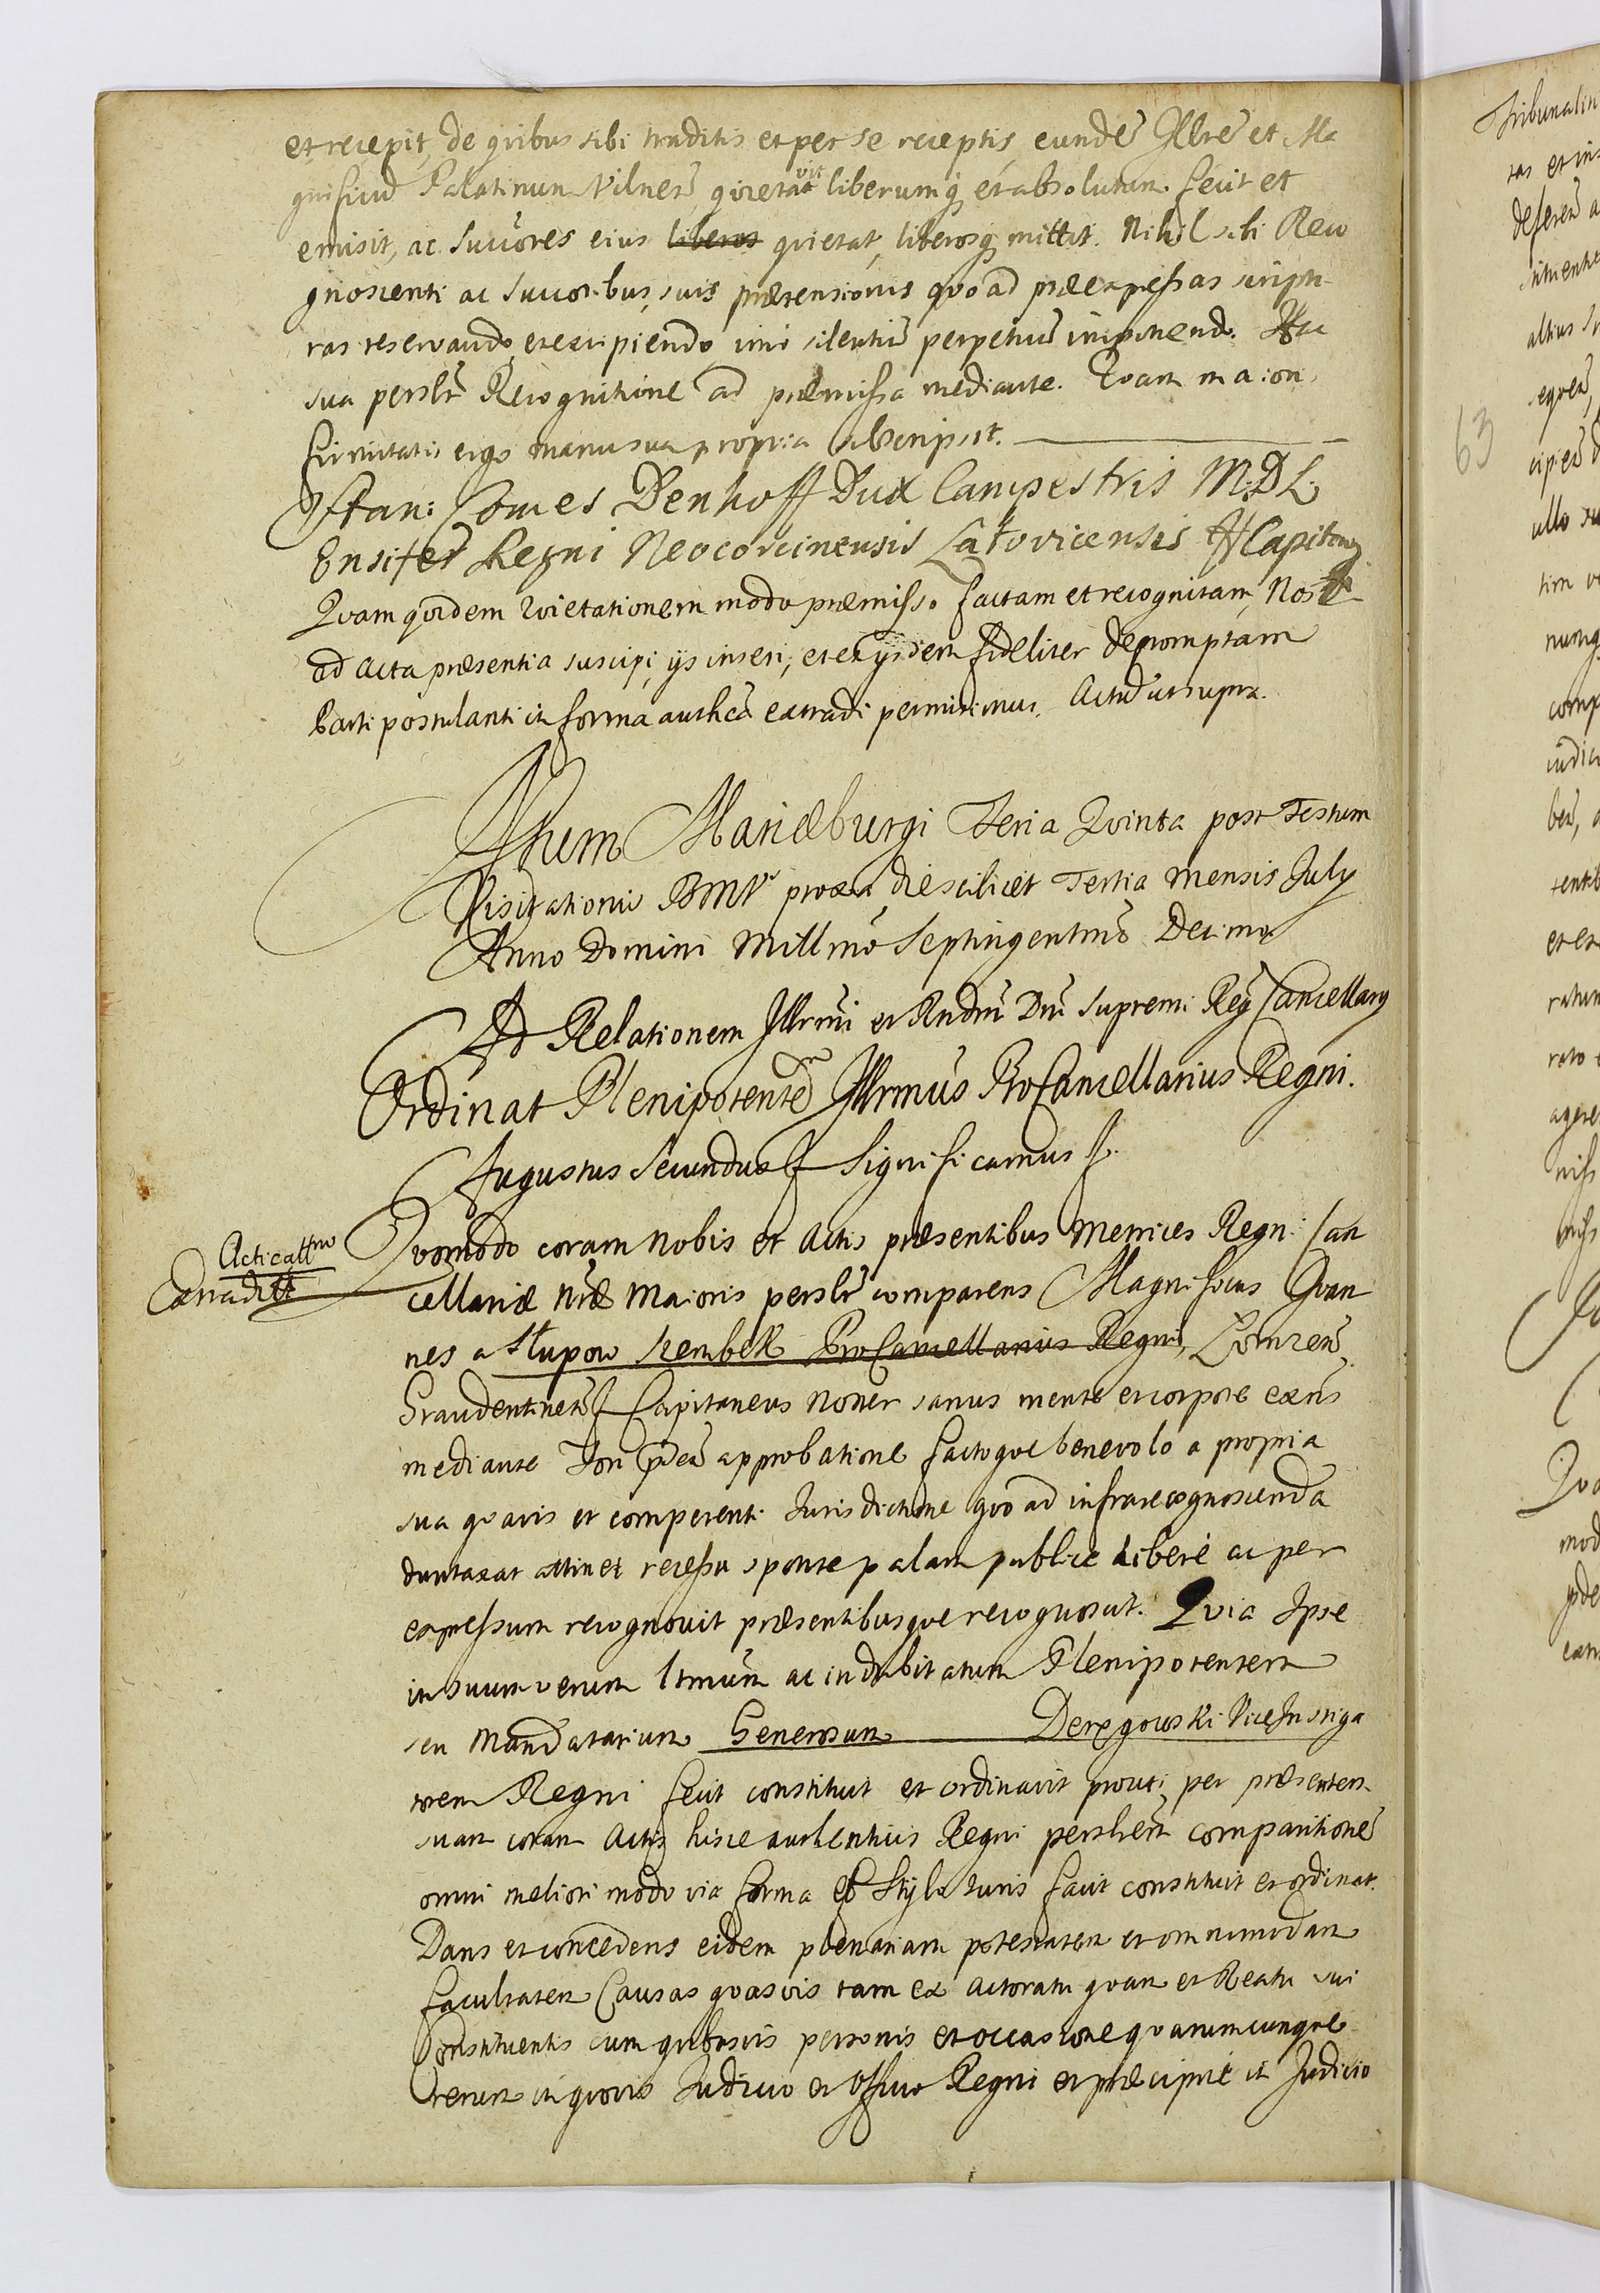 et recepit, de quibus sibi traditis et per se receptis, eundē Illrē et Ma
gnificū Palatinum Vilneñ quietavit liberumq̃ et absolutum fecit et
emisit, ac Succōres eius liberos quietat, liberosq̃ mittit. Nihil sibi Reco
gnoscenti ac Succoribus suis prætensionis quoad præexpressas scriptu
ras reservando, excipiendo imò silentiū perpetuū imponendo. Hac
sua persłr Recognitione ad præmissa mediante. Quam in maiorē
firmitatis ergo manu sua propria subscripsit.
Stan: Comes Denhoff Dux Campestris M.D.L.
Ensifer Regni Neocorcinensis Latovicensis Capitaneus
Quam quidem Quietationem modo præmisso factam et recognitam, Nos
ad acta præsentia suscipi, ijs inseri, et ex ijsdem fideliter depromptam
Parti postulanti in forma authēa extradi permisimus. Actū ut supra.
Actum Mariæburgi Feria Quinta post Festum
Visitationis BMV proxa die scilicet Tertia Mensis July
Anno Domini Millmō Septingentmō Decimo
Ad Relationem Illrmi et Rndmi Dni Supremi Regni Cancellarij
Ordinat Plenipotentē Illrmus ProCancellarius Regni.
Augustus Secundus Significamus
Acticattm
Extraditt
Quomodo coram nobis et Actis præsentibus Metrices Regni Can
cellariæ Nræ Maioris persłr comparens Magnificus Ioan
nes a Słupow Szembek ProCancellarius Regni, Łomzeñ
Graudentineñ Capitaneus Noster sanus mente et corpore exñs
mediante approbatione factoque benevolo a propria
sua quavis et competenti Iurisdictione quoad infrarecognoscenda
duntaxat attinet recessu sponte palam publice liberè ac per
expressum recognovit præsentibusque recognoscit. Quia Ipse
in suum verum ltmūm ac indubitatum Plenipotentem
seu Mandatarium Generosum Deręgowski ViceInstiga
torem Regni fecit constituit et ordinavit prouti per præsentem
suam coram Actis hisce authenticis Regni persłrem comparitionē
omni meliori modo via forma et Stylo iuris facit constituit et ordinat.
Dans et concedens eidem plenariam potestatem et omnimodam
facultatem Causas quasvis tam ex actoratu quam et Reatu sui
Constituentis cum quibusvis personis et occasione quarumcunque
rerum in quovis Iudicio et Officio Regni et præcipuè in Judicio
63